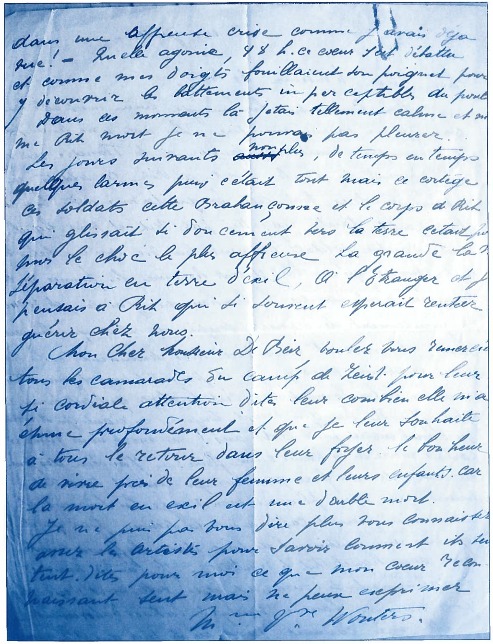 dans une affreuse crise comme j'avais deja
vue! - Quelle agonie, 48 h. ce coeur s'est débattu
et comme mes doigts fouillaient son poignet pour
y découvrir les battements imperceptibles du pouls
Dans ces moments là j'étais tellement calme et
me Rik mort je ne pouvais pas pleurer.
Les jours suivants non plus, de temps en temps
quelques larmes puis c'était tout mais ce cortège
ces soldats cette Brabançonne et le corps de Rik
qui glissait si doucement vers la terre c'était
moi le choc le plus affreuse la grande la
séparation en terre d'exil, à l'étranger et je
pensais à Rik qui si souvent esperait rentrer
guérir chez nous.
Mon Cher Monsieur De Beir voulez vous remercier
tous les camarades du camp de Zeist pour leur
si cordiale attention dites leur combien elle m'a
émue profondéament et que je leur souhaite
à tous le retour dans leur foyer le bonheur
de vivre près de leur femme et leurs enfants. car
la mort en exil est une double mort.
Je ne puis pas vous dire plus vous connaissez
assez les artistes pour savoir comment ils sen
tent. dites pour moi ce que mon coeur recon
naissant sent mais ne peux exprimer
Mme Vve Wouters.